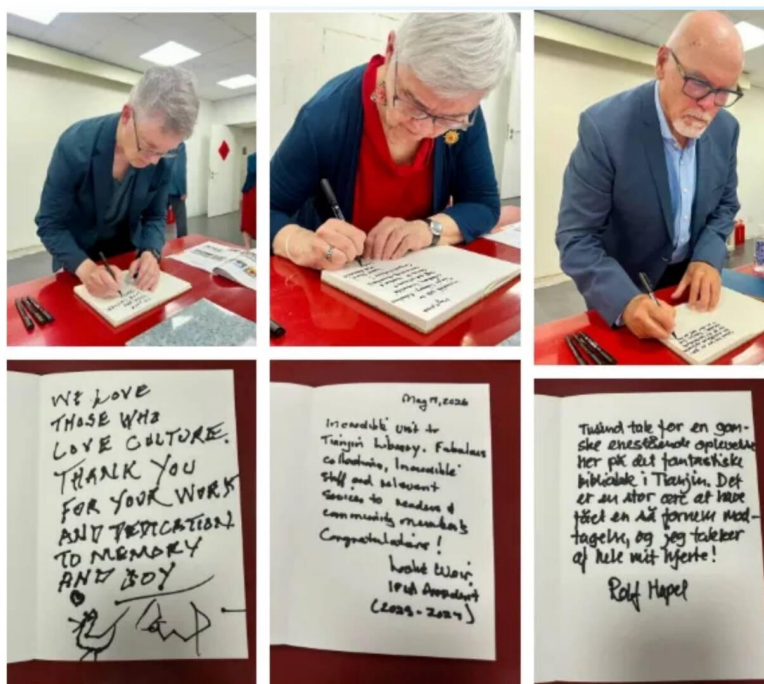 WE LOVE
THOSE WHO
LOVE CULTURE.
THANK YOU
FOR YOUR WORK
AND DEDICATION
TO MEMORY
AND JOY
May 19, 2026
Incredible visit to
Tianjin Library. Fabulous
collections, Incredible
staff and relevant
services to readers &
community members
Congratulations!
IFLA President
Tusind tak for en gan-
ske enestående oplevelse
her på det fantastiske
bibliotek i Tianjin. Det
er en stor ære at have
fået en så fornem mod-
tagelse, og jeg takker
af hele mit hjerte!
Rolf Hapel